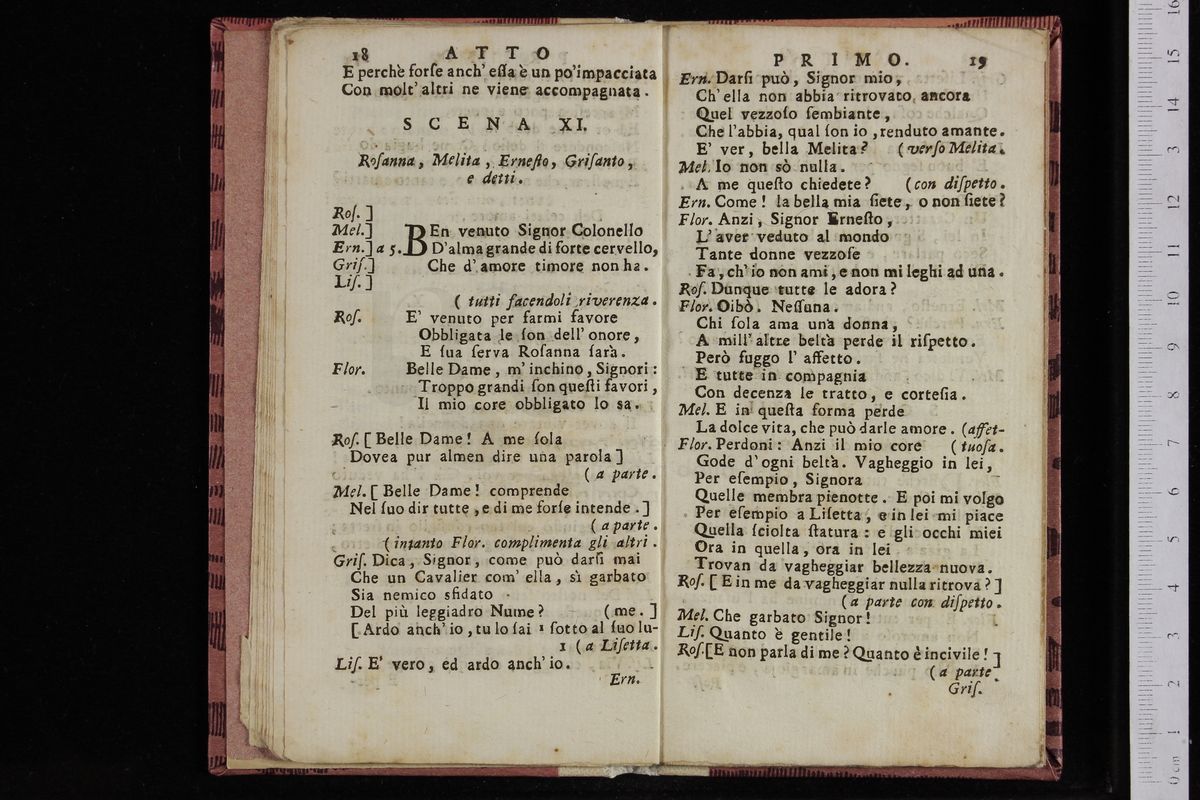 18 ATTO
E perchè forſe anch' eſſa è un po' impacciata
Con molt' altri ne viene accompagnata.
SCENA XI.
Roſanna, Melita, Erneſto, Griſanto,
e detti.
Roſ. ]
Mel. ] BEn venuto Signor Colonello
Ern. ] a 5. D'alma grande di forte cervello,
Griſ. ] Che d' amore timore non ha.
Liſ. ]
( tutti facendoli riverenza.
Roſ. E' venuto per farmi favore
Obbligata le ſon dell' onore,
E ſua ſerva Roſanna ſarà.
Flor. Belle Dame, m' inchino, Signori:
Troppo grandi ſon queſti favori,
Il mio core obbligato lo sa.
Roſ. [ Belle Dame! A me ſola
Dovea pur almen dire una parola ]
( a parte.
Mel. [ Belle Dame! comprende
Nel ſuo dir tutte, e di me forſe intende. ]
( a parte.
( intanto Flor. complimenta gli altri.
Griſ. Dica, Signor, come può darſi mai
Che un Cavalier com' ella, sì garbato
Sia nemico sfidato
Del più leggiadro Nume? ( me. ]
[ Ardo anch' io, tu lo ſai 1 ſotto al ſuo lu-
1 ( a Liſetta.
Liſ. E' vero, ed ardo anch' io.
Ern.
PRIMO. 19
Ern. Darſi può, Signor mio,
Ch' ella non abbia ritrovato ancora
Quel vezzoſo ſembiante,
Che l'abbia, qual ſon io, renduto amante.
E' ver, bella Melita? ( verſo Melita.
Mel. Io non sò nulla.
A me queſto chiedete? ( con diſpetto.
Ern. Come! la bella mia ſiete, o non ſiete?
Flor. Anzi, Signor Erneſto,
L' aver veduto al mondo
Tante donne vezzoſe
Fa, ch' io non ami, e non mi leghi ad una.
Roſ. Dunque tutte le adora?
Flor. Oibò. Neſſuna.
Chi ſola ama una donna,
A mill' altre beltà perde il riſpetto.
Però fuggo l' affetto.
E tutte in compagnia
Con decenza le tratto, e corteſia.
Mel. E in queſta forma perde
La dolce vita, che può darle amore. (affet-
Flor. Perdoni: Anzi il mio core ( tuoſa.
Gode d' ogni beltà. Vagheggio in lei,
Per eſempio, Signora
Quelle membra pienotte. E poi mi volgo
Per eſempio a Liſetta, e in lei mi piace
Quella ſciolta ſtatura: e gli occhi miei
Ora in quella, ora in lei
Trovan da vagheggiar bellezza nuova.
Roſ. [ E in me da vagheggiar nulla ritrova? ]
( a parte con diſpetto.
Mel. Che garbato Signor!
Liſ. Quanto è gentile!
Roſ. [E non parla di me? Quanto è incivile! ]
( a parte.
Griſ.